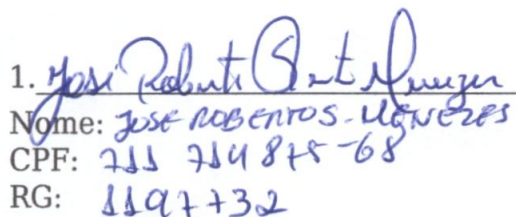 1. José Roberto
Nome: JOSE ROBERTO S. MENEZES
CPF: 711 714 875-68
RG: 1197732